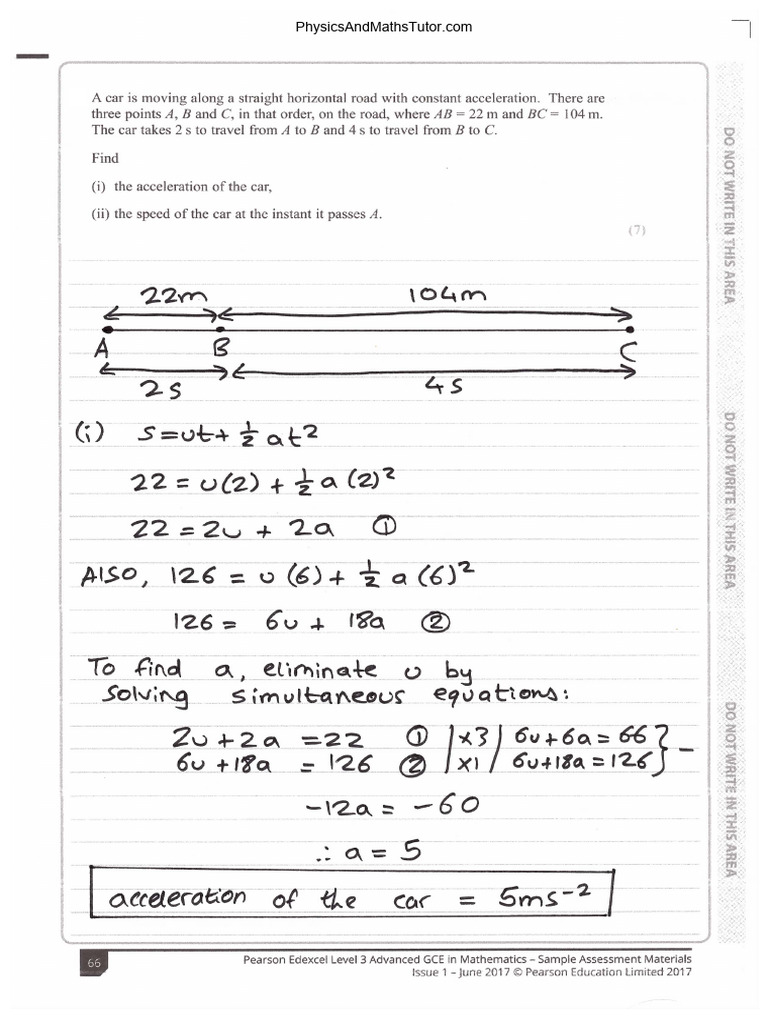 PhysicsAndMathsTutor.com
A car is moving along a straight horizontal road with constant acceleration. There are
three points A, B and C, in that order, on the road, where AB = 22 m and BC = 104 m.
The car takes 2 s to travel from A to B and 4 s to travel from B to C.
Find
(i) the acceleration of the car,
(ii) the speed of the car at the instant it passes A.
(7)
22m 104m
A B C
2s 4s
(i) s=ut+ ½ at²
22 = u(2) + ½ a (2)²
22 = 2u + 2a ①
Also, 126 = u (6) + ½ a (6)²
126 = 6u + 18a ②
To find a, eliminate u by
solving simultaneous equations:
2u + 2a = 22 ① | x3 | 6u + 6a = 66 } -
6u + 18a = 126 ② | x1 | 6u + 18a = 126
-12a = -60
∴ a = 5
acceleration of the car = 5ms⁻²
66
Pearson Edexcel Level 3 Advanced GCE in Mathematics – Sample Assessment Materials
Issue 1 – June 2017 © Pearson Education Limited 2017
DO NOT WRITE IN THIS AREA
DO NOT WRITE IN THIS AREA
DO NOT WRITE IN THIS AREA